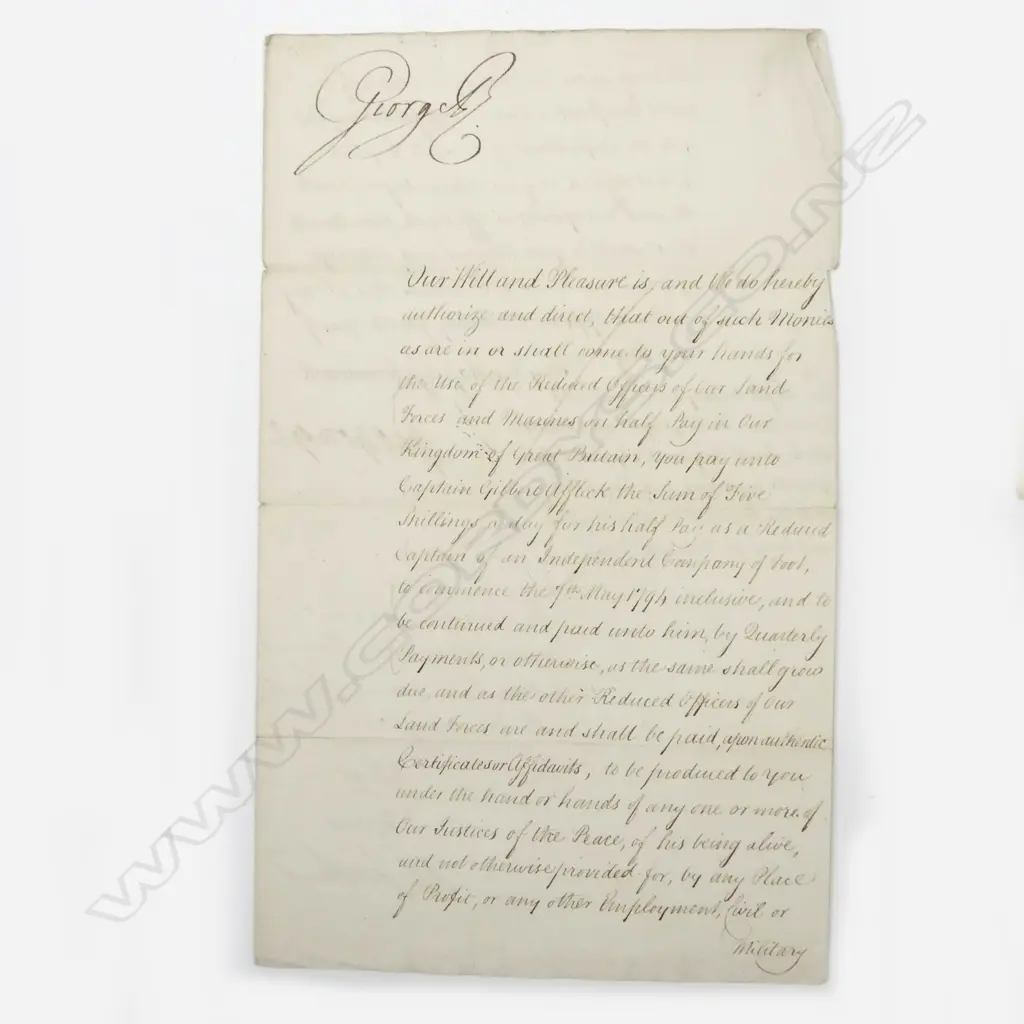 George R
Our Will and Pleasure is, and We do hereby
authorize and direct, that out of such Monies
as are in or shall come to your hands for
the Use of the Reduced Officers of Our Land
Forces and Marines on half Pay in Our
Kingdom of Great Britain, you pay unto
Captain Gilbert Affleck the Sum of Five
Shillings a day for his half Pay as a Reduced
Captain of an Independent Company of Foot,
to commence the 7th May 1794 inclusive, and to
be continued and paid unto him, by Quarterly
Payments, or otherwise, as the same shall grow
due, and as the other Reduced Officers of Our
Land Forces are and shall be paid, upon authentic
Certificates or Affidavits, to be produced to you
under the hand or hands of any one or more of
Our Justices of the Peace, of his being alive,
and not otherwise provided for, by any Place
of Profit, or any other Employment, Civil or
Military
WWW.CORDYS.CO.NZ